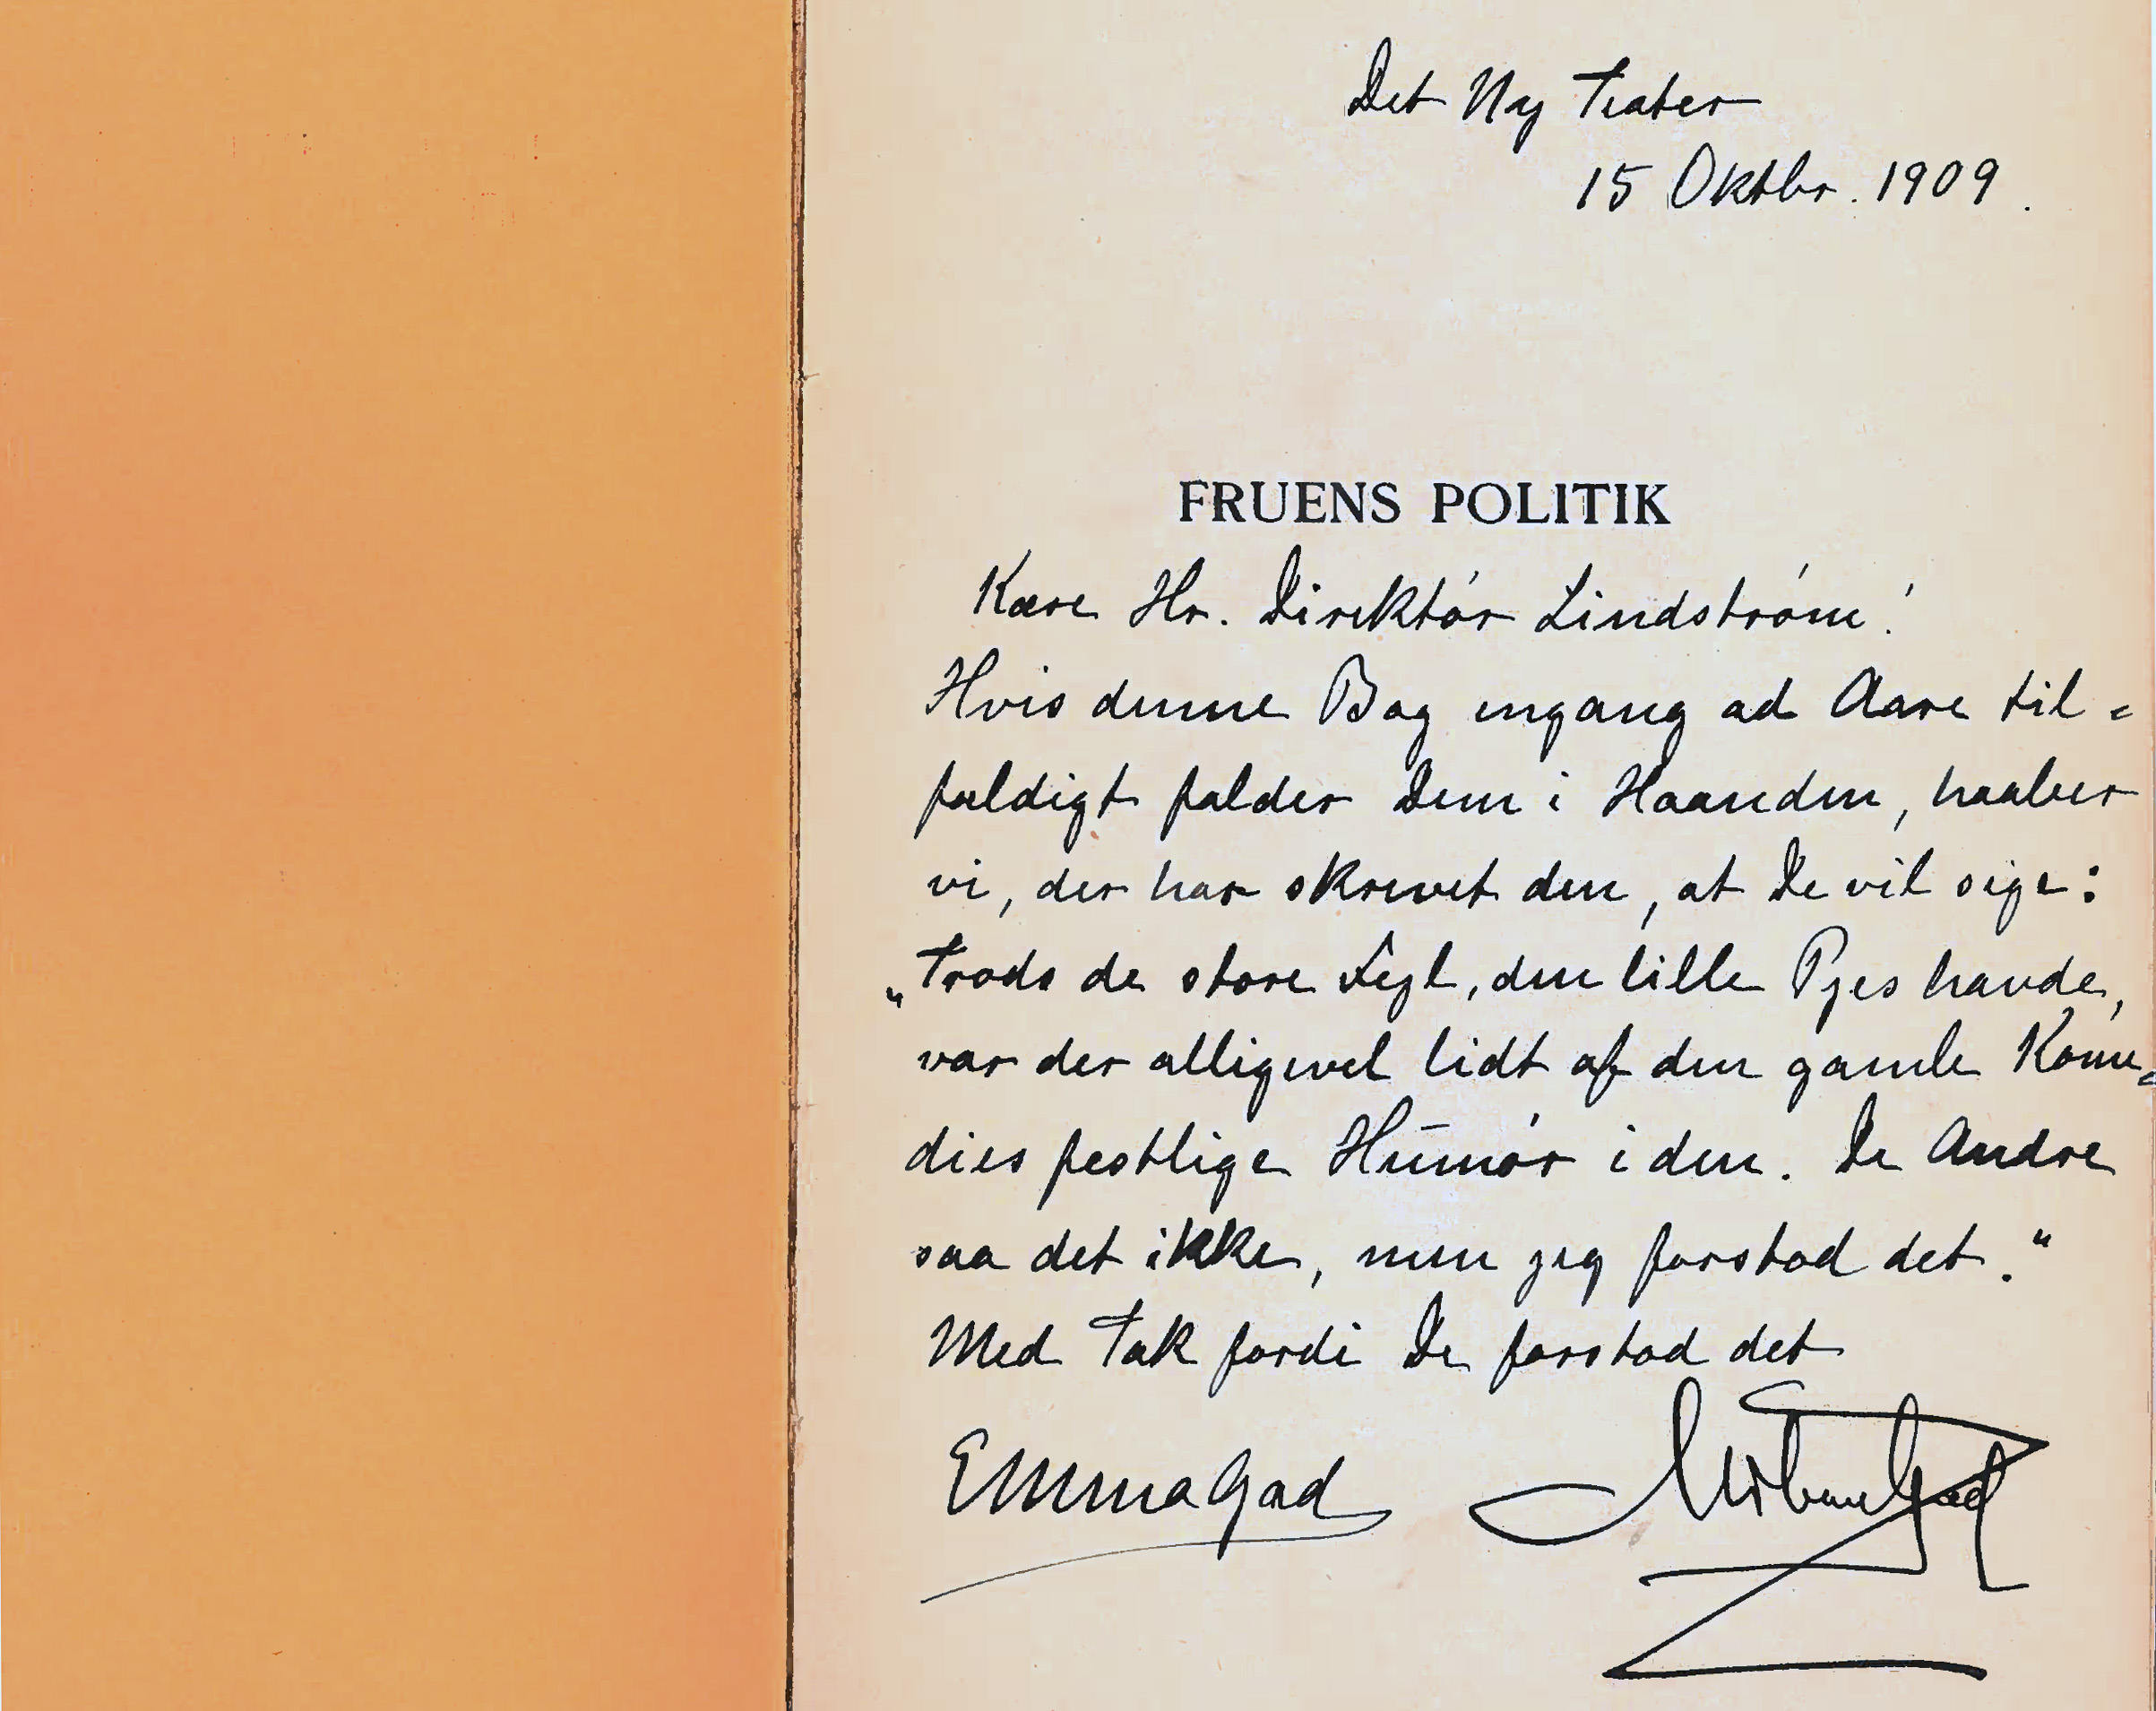 Det Ny Teater
15 Oktbr. 1909.
FRUENS POLITIK
Kære Hr. Direktór Lindstróm!
Hvis denne Bog engang ad Aare til=
fældigt falder Dem i Haanden, haaber
vi, der har skrevet den, at De vil sige:
„Trods de store Fejl, den lille Pjes havde,
var der alligevel lidt af den gamle Kóme=
dies festlige Humór i den. De Andre
saa det ikke, men jeg forstod det."
Med Tak fordi De forstod det
Emma Gad
Urban Gad